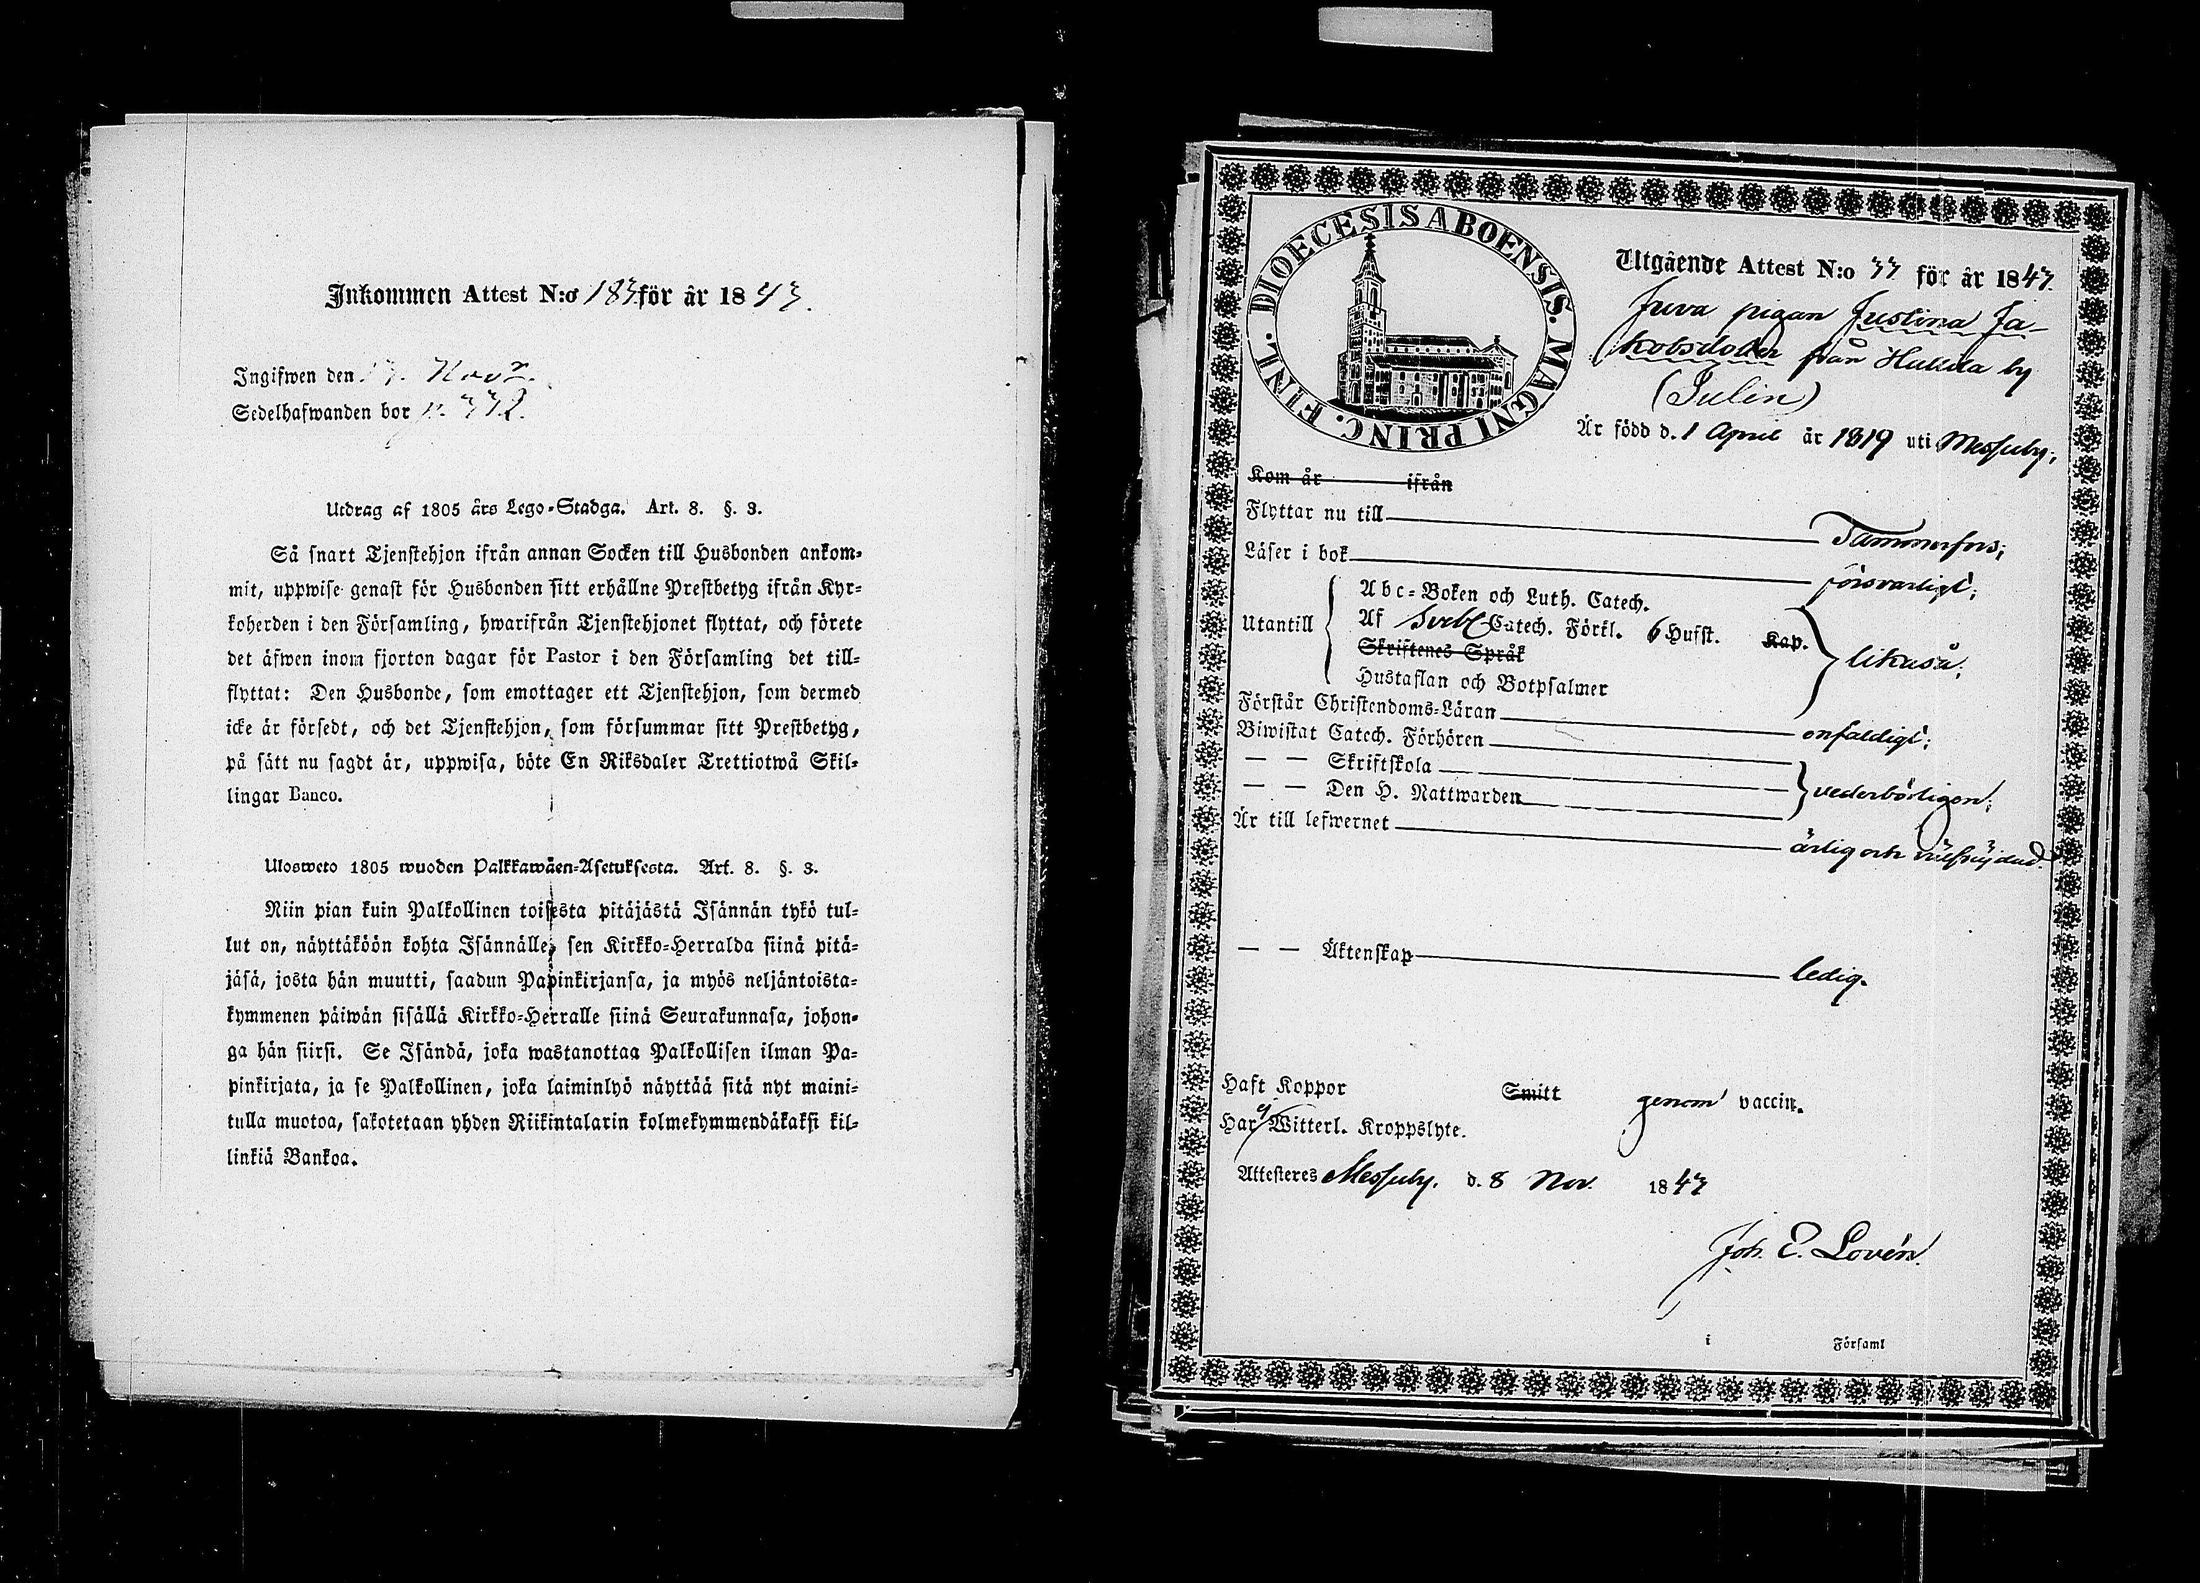 Inkommen Attest N:o 183 för år 1843.
Ingifwen den 17. Nov.
Sedelhafwanden bor p. 332.
Utdrag af 1805 års Lego-Stadga. Art. 8. §. 3.
Så snart Tjenstehjon ifrån annan Socken till Husbonden ankom-
mit, uppwise genast för Husbonden sitt erhållne Prestbetyg ifrån Kyr-
koherden i den Församling, hwarifrån Tjenstehjonet flyttat, och förete
det äfwen inom fjorton dagar för Pastor i den Församling det till-
flyttat: Den Husbonde, som emottager ett Tjenstehjon, som dermed
icke är försedt, och det Tjenstehjon, som försummar sitt Prestbetyg,
på sätt nu sagdt är, uppwisa, böte En Riksdaler Trettiotwå Skil-
lingar Banco.
Ulosweto 1805 wuoden Palkkawäen-Asetuksesta. Art. 8. §. 3.
Niin pian kuin Palkollinen toisesta pitäjästä Isännän tykö tul-
lut on, näyttäköön kohta Isännälle, sen Kirkko-Herralda siinä pitä-
jäsä, josta hän muutti, saadun Papinkirjansa, ja myös neljäntoista-
kymmenen päiwän sisällä Kirkko-Herralle siinä Seurakunnasa, johon-
ga hän siirsi. Se Isändä, joka wastanottaa Palkollisen ilman Pa-
pinkirjata, ja se Palkollinen, joka laiminlyö näyttää sitä nyt maini-
tulla muotoa, sakotetaan yhden Riikintalarin kolmekymmendäkaksi kil-
linkiä Bankoa.
DIOECESIS ABOENSIS. MAGNI PRINC. FINL.
Utgående Attest N:o 33 för år 1843.
Juva pigan Justina Ja-
kobsdotter från Hukkila by
(Julin)
Är född d. 1 April år 1819 uti Messuby;
Kom år ifrån
Flyttar nu till Tammerfors;
Läser i bok försvarligt;
Utantill
Abc-Boken och Luth. Catech.
Af Sveb. Catech. Förkl. 6 Hufst. Kap.
Skriftenes Språk
Hustaflan och Botpsalmer
likaså;
Förstår Christendoms-Läran enfaldigt;
Biwistat Catech. Förhören
— — Skriftskola
— — Den H. Nattwarden
vederbörligen;
Är till lefwernet ärlig och välfrejdad.
— — Äktenskap ledig.
Haft Koppor Smitt genom vaccin.
Har ej Witterl. Kroppslyte.
Attesteres Messuby. d. 8 Nov. 1843
Joh. E. Lovén.
i Församl